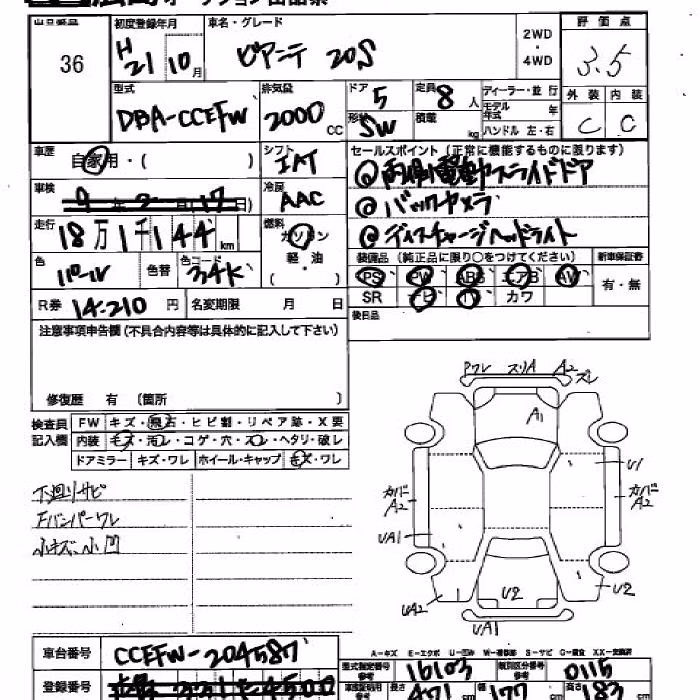 出品番号 36
初度登録年月 H21 10月
車名・グレード ビアンテ 20S
2WD・4WD
評価点 3.5
型式 DBA-CCEFW
排気量 2000 CC
ドア 5
形状 SW
定員 8人
積載 kg
ディーラー・並行
モデル年式 年
ハンドル 左・右
外装 C
内装 C
車歴 自家用・( )
シフト IAT
セールスポイント (正常に機能するものに限ります)
@両側電動スライドドア
@バックカメラ
@ディスチャージヘッドライト
車検 9年2月17日
冷房 AAC
走行 18万1千144km
燃料 ガソリン
軽・油
( )
色 パール
色替
色コード 34K
装備品 (純正品に限り○をつけてください)
新車保証書 有・無
PS PW ABS エアB AW
SR ナビ TV カワ
R券 14-210 円
名変期限 月 日
後日品
注意事項申告欄 (不具合内容等は具体的に記入して下さい)
修復歴 有 〔箇所 〕
検査員記入欄
FW キズ・飛石・ヒビ割・リペア跡・X要
内装 キズ・汚レ・コゲ・穴・スレ・ヘタリ・破レ
ドアミラー キズ・ワレ ホイール・キャップ キズ・ワレ
下廻りサビ
Fバンパーワレ
小キズ、小凹
Pワレ スリA A2 ズレ
A1
U1
カバーA2
カバーA2
UA1
U2
U2
UA2
UA1
A-キズ E-エクボ U-凹 W-補修跡 S-サビ C-腐食 XX-交換済
車台番号 CCEFW-204587
型式指定番号 16103
類別区分番号 0115
登録番号
長さ 471 cm 幅 177 cm 高さ 183 cm